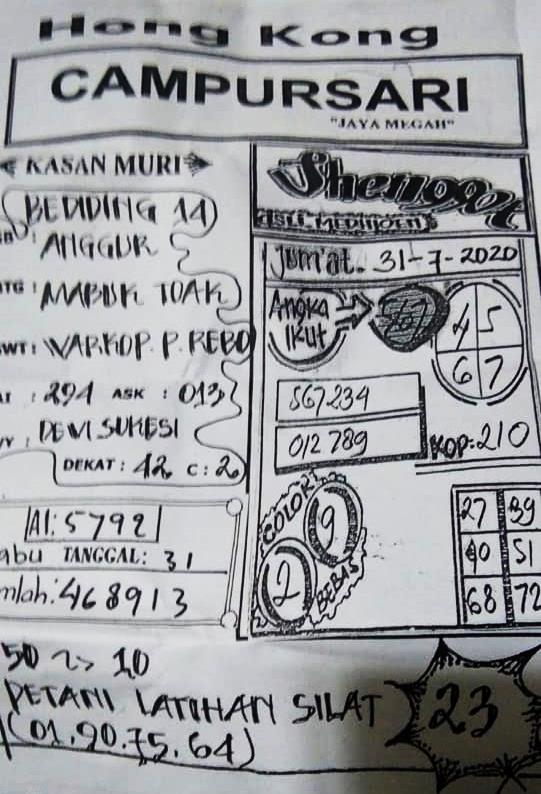 Hong Kong
CAMPURSARI
"JAYA MEGAH"
KASAN MURI
BEDIDING 14
: ANGGUR
TG : MABUK TOAK
WT: WARKOP. P. REBO
: 294 ASK : 013
: DEWI SUKESI
DEKAT : 42 C : 20
AI: 5792
abu TANGGAL: 31
mlah: 468913
50 ~> 10
PETANI LATIHAN SILAT
(01.90.75.64)
23
Jum'at. 31-7-2020
Angka
Ikut
4 5
6 7
567234
012789
KOP: 210
COLOK
9
2
BEBAS
27 39
40 51
68 72